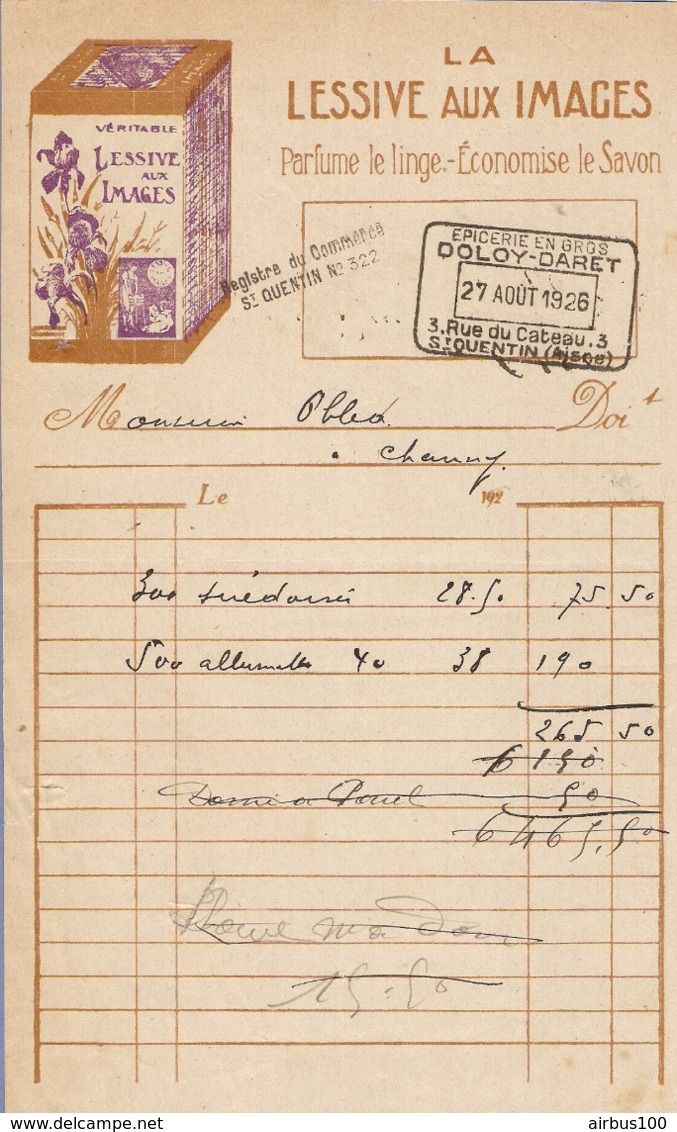 LA
LESSIVE AUX IMAGES
Parfume le linge.-Économise le Savon
VÉRITABLE
LESSIVE
AUX
IMAGES
Registre du Commerce
St QUENTIN No 322
EPICERIE EN GROS
DOLOY-DARET
27 AOUT 1926
3.Rue du Cateau.3
St QUENTIN (Aisne)
Monsieur Doit
à Chauny
Le 192
300 28.50 75.50
500 allumettes 40 38 190
265 50
6 190
50
6 465.50
15.50
delcampe.net
airbus100